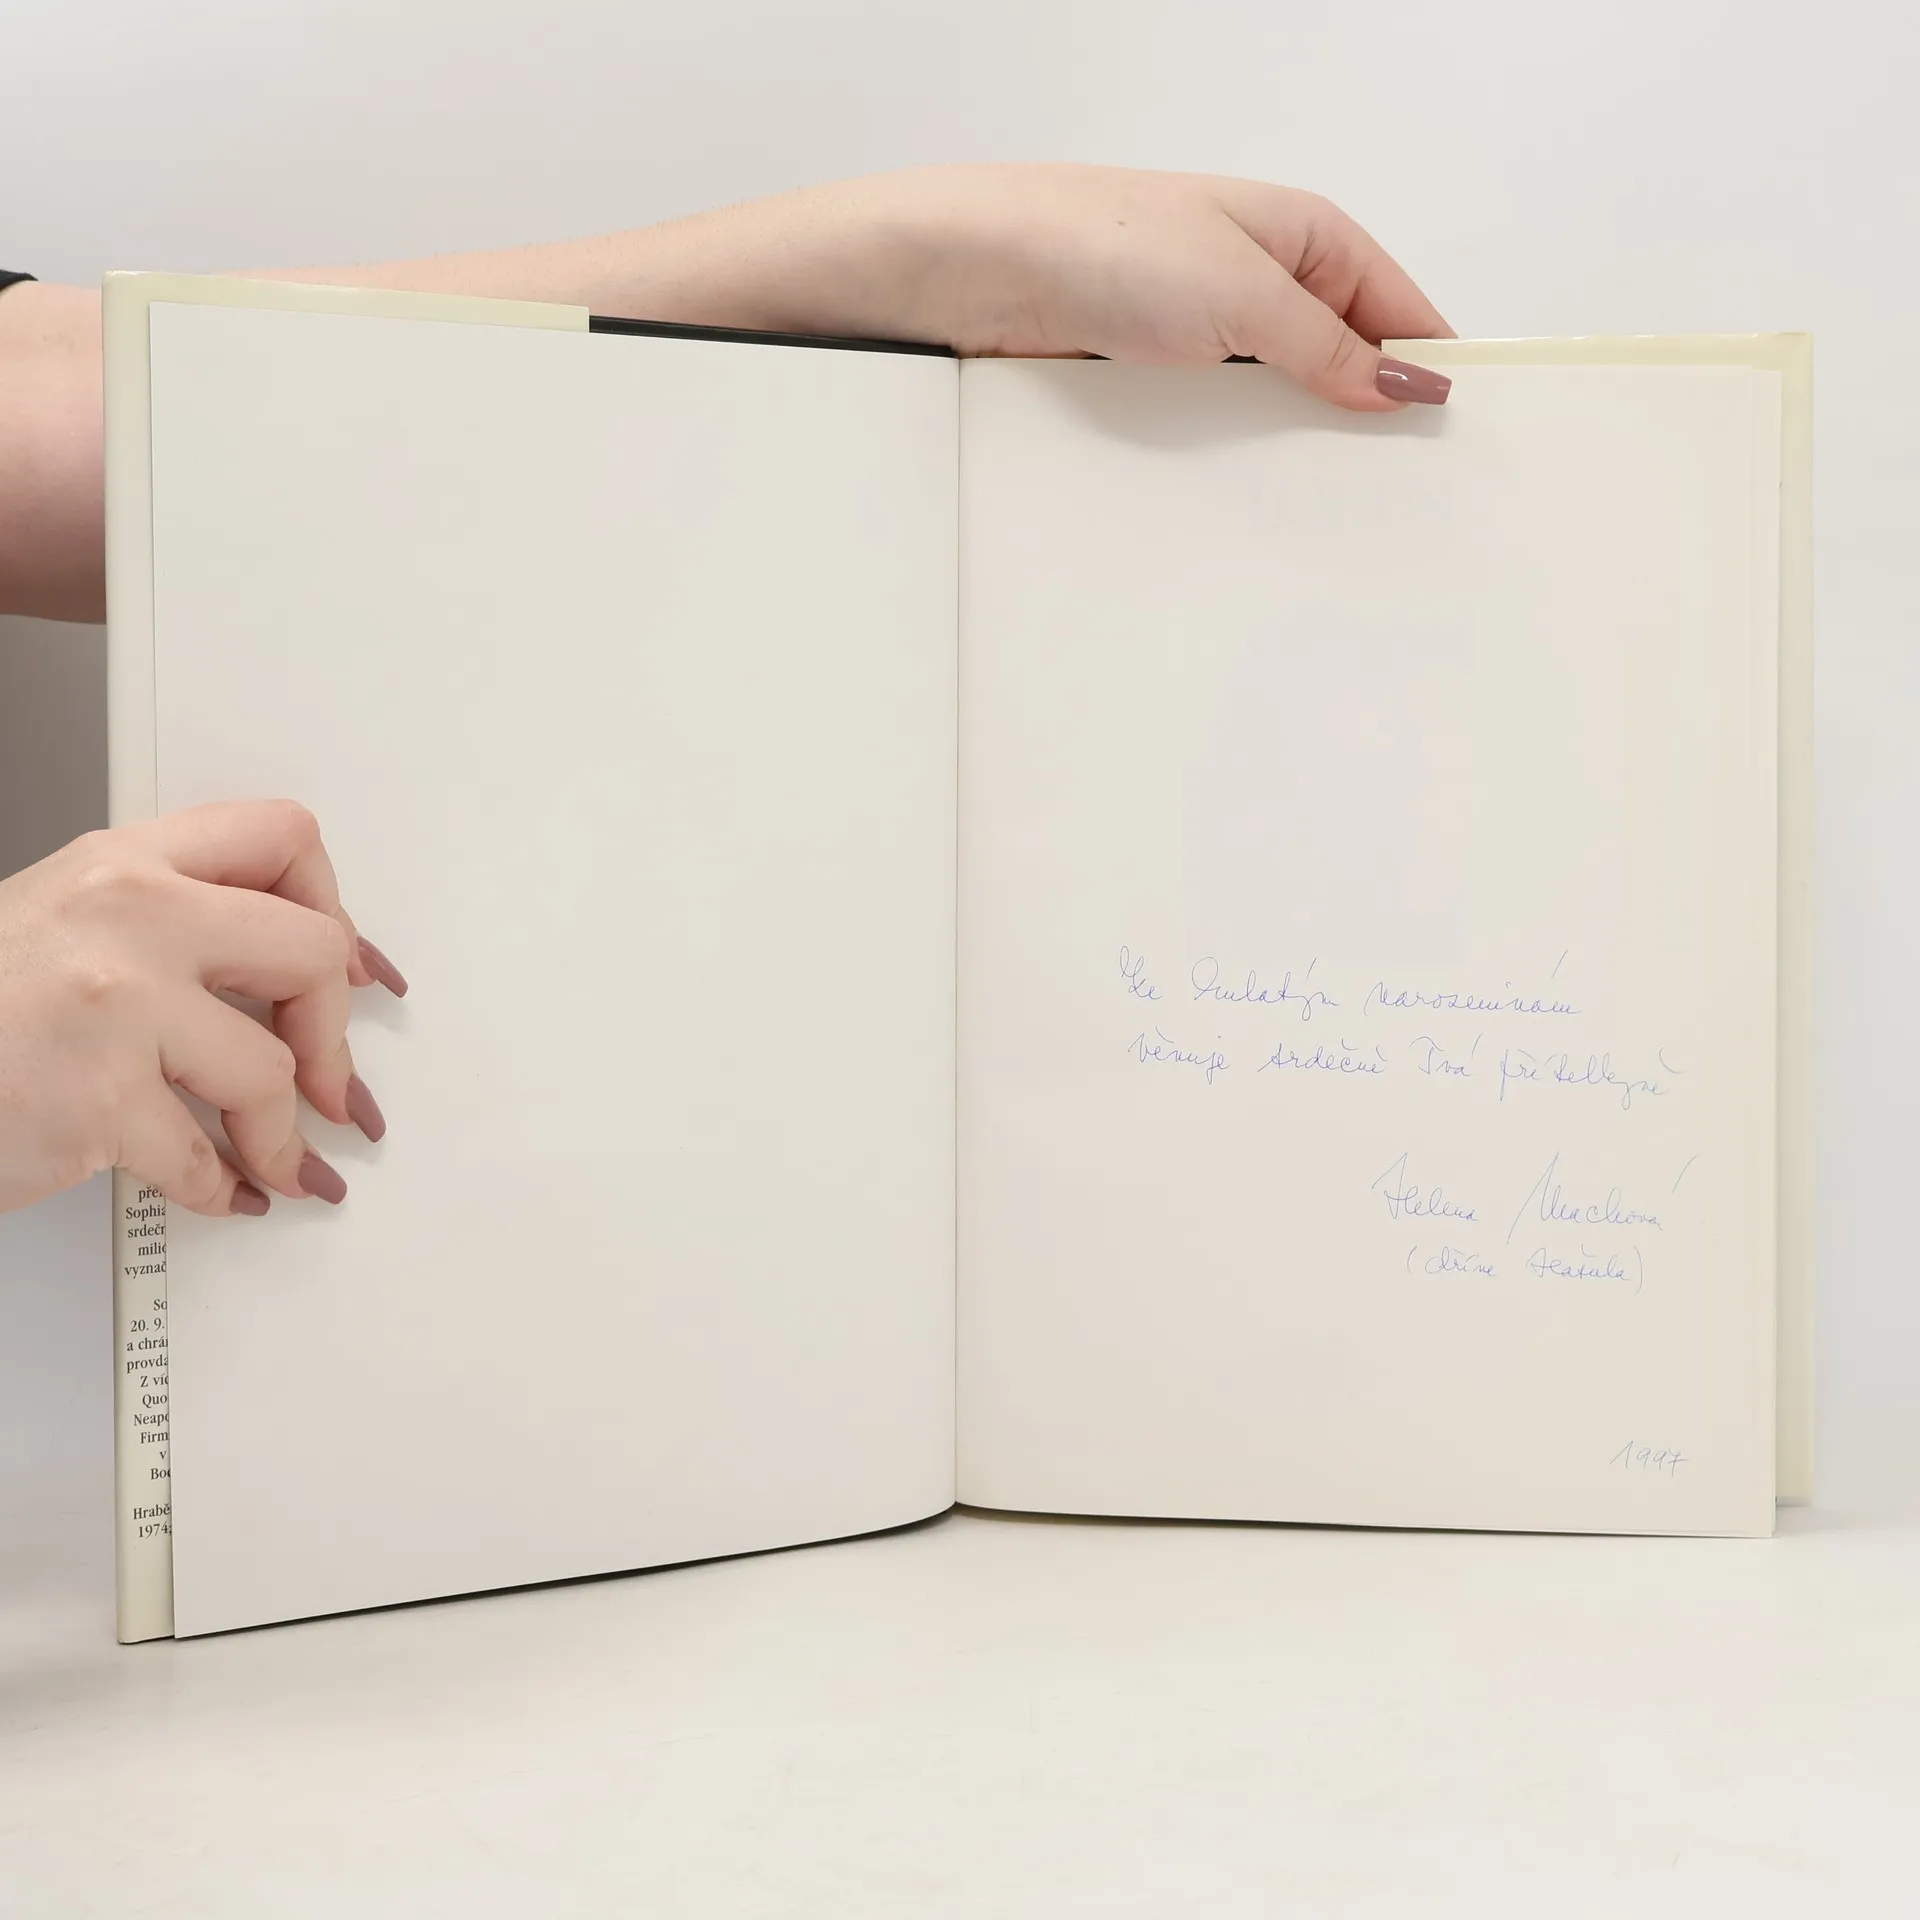 pře
Sophia
srdečn
milic
vyznač
So
20. 9.
a chrá
provda
Z víc
Quo
Neapo
Firm
v
Boc
Hrabě
1974;
Ke kulatým narozeninám
věnuje srdečně Tvá přítelkyně
Helena Machová
(dříve
1997